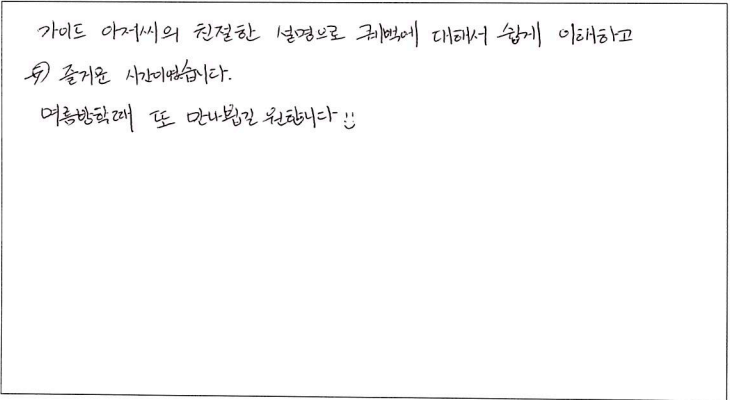 가이드 아저씨의 친절한 설명으로 퀘벡에 대해서 쉽게 이해하고
즐거운 시간이었습니다.
여름방학때 또 만나뵙길 원합니다 :)